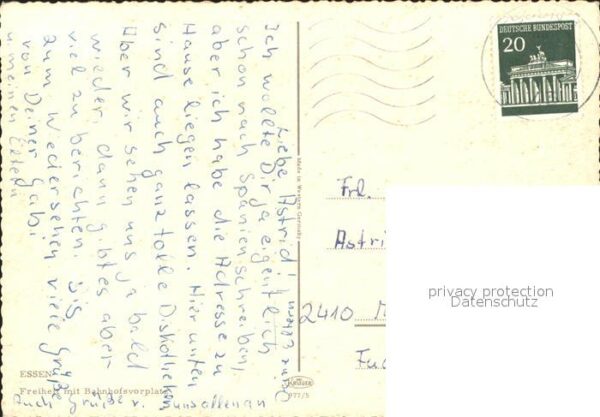 Liebe Astrid!
Ich wollte Dir ja eigentlich
schon nach Spanien schreiben,
aber ich habe die Adresse zu
Hause liegen lassen. Hier unten
sind auch ganz tolle Diskotheken
Aber wir sehen uns ja bald
wieder, dann gibt es aber
viel zu berichten. Bis
zum Wiedersehen viele Grüße
von Deiner Gabi
u meinen Eltern
Auch Grüße v. uns allen an
ESSEN
Freiheit mit Bahnhofsvorplatz
Made in Western Germany
Krüger
977/5
DEUTSCHE BUNDESPOST
20
Frl.
Astri
2410 M
privacy protection
Datenschutz